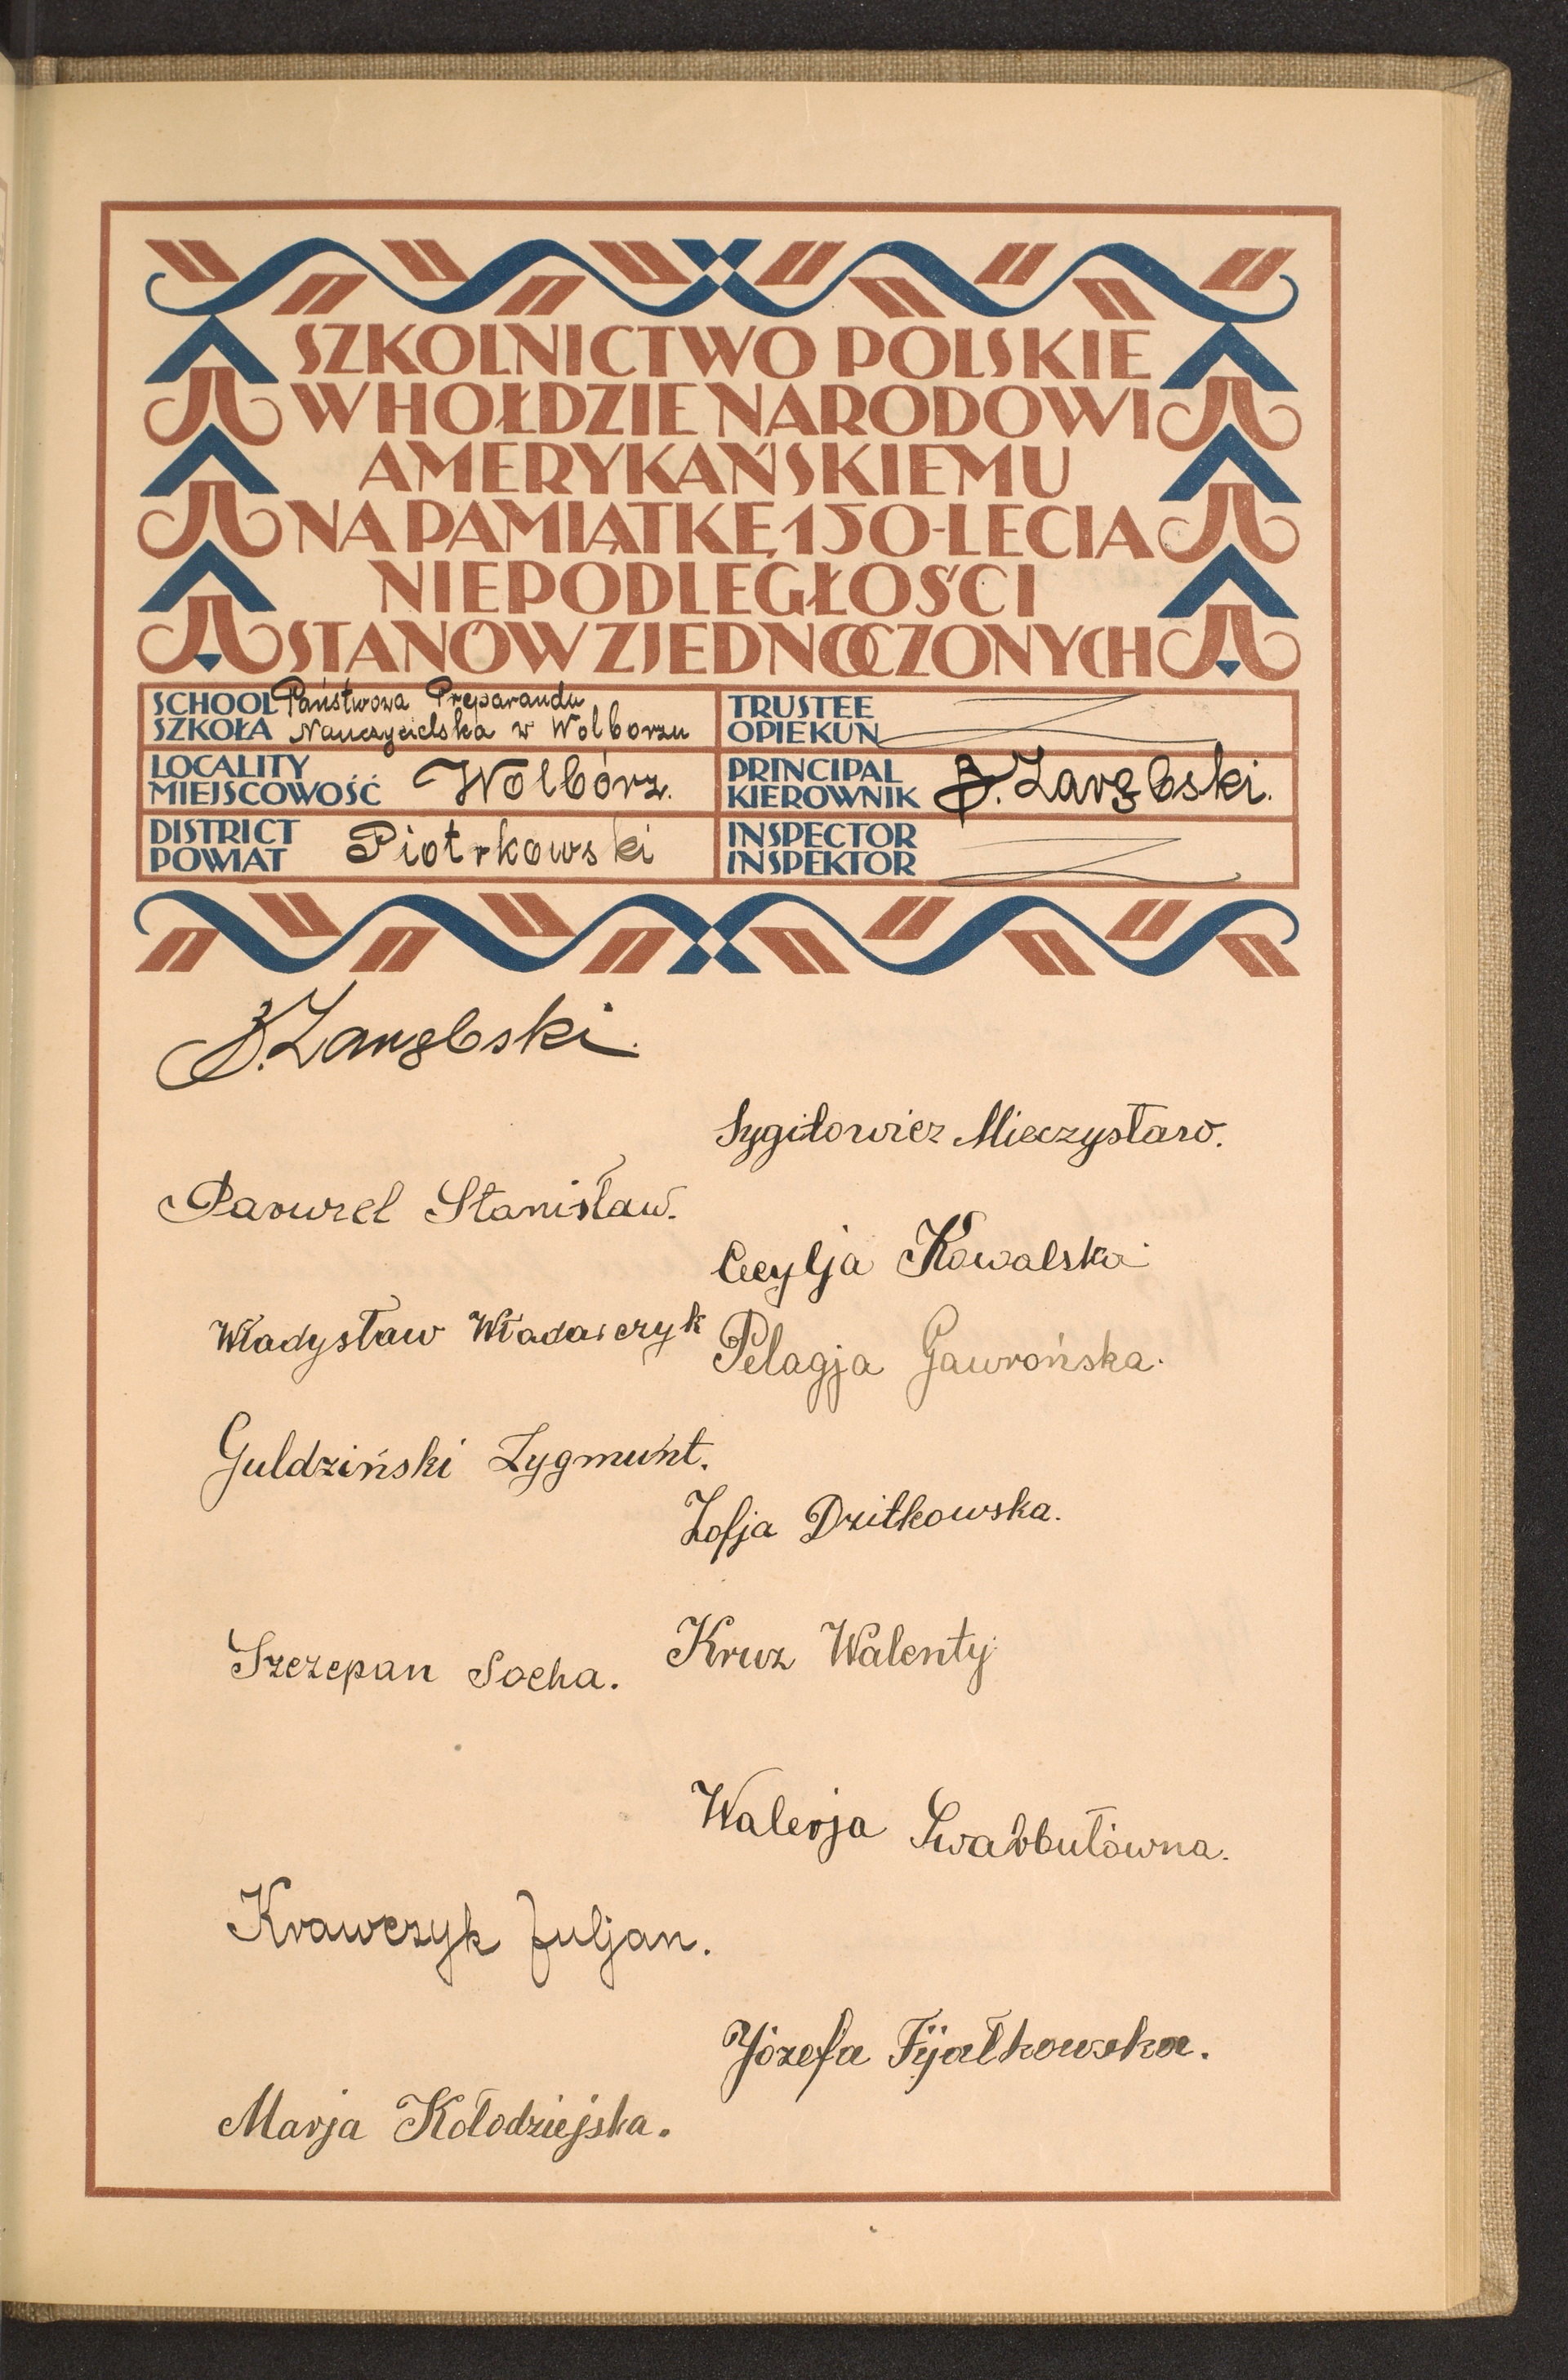 SZKOLNICTWO POLSKIE
W HOŁDZIE NARODOWI
AMERYKAŃSKIEMU
NA PAMIĄTKĘ 150-LECIA
NIEPODLEGŁOŚCI
STANÓW ZJEDNOCZONYCH
SCHOOL Państwowa Preparanda
SZKOŁA Nauczycielska w Wolborzu
TRUSTEE
OPIEKUN
LOCALITY
MIEJSCOWOŚĆ Wolbórz.
PRINCIPAL
KIEROWNIK Zarębski.
DISTRICT
POWIAT Piotrkowski
INSPECTOR
INSPEKTOR
Zarębski.
Sygitowicz Mieczysław.
Stanisław.
Cecylja Kowalska
Władysław
Pelagja Gawrońska.
Guldziński Zygmunt.
Zofja Dzitkowska.
Szczepan Socha.
Kruz Walenty
Walerja
Krawczyk Juljan.
Józefa Fijałkowska.
Marja Kołodziejska.